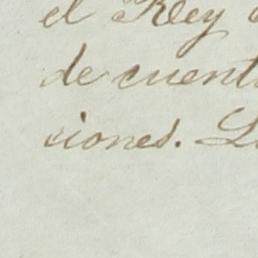 el Rey
de cuent
ciones. L